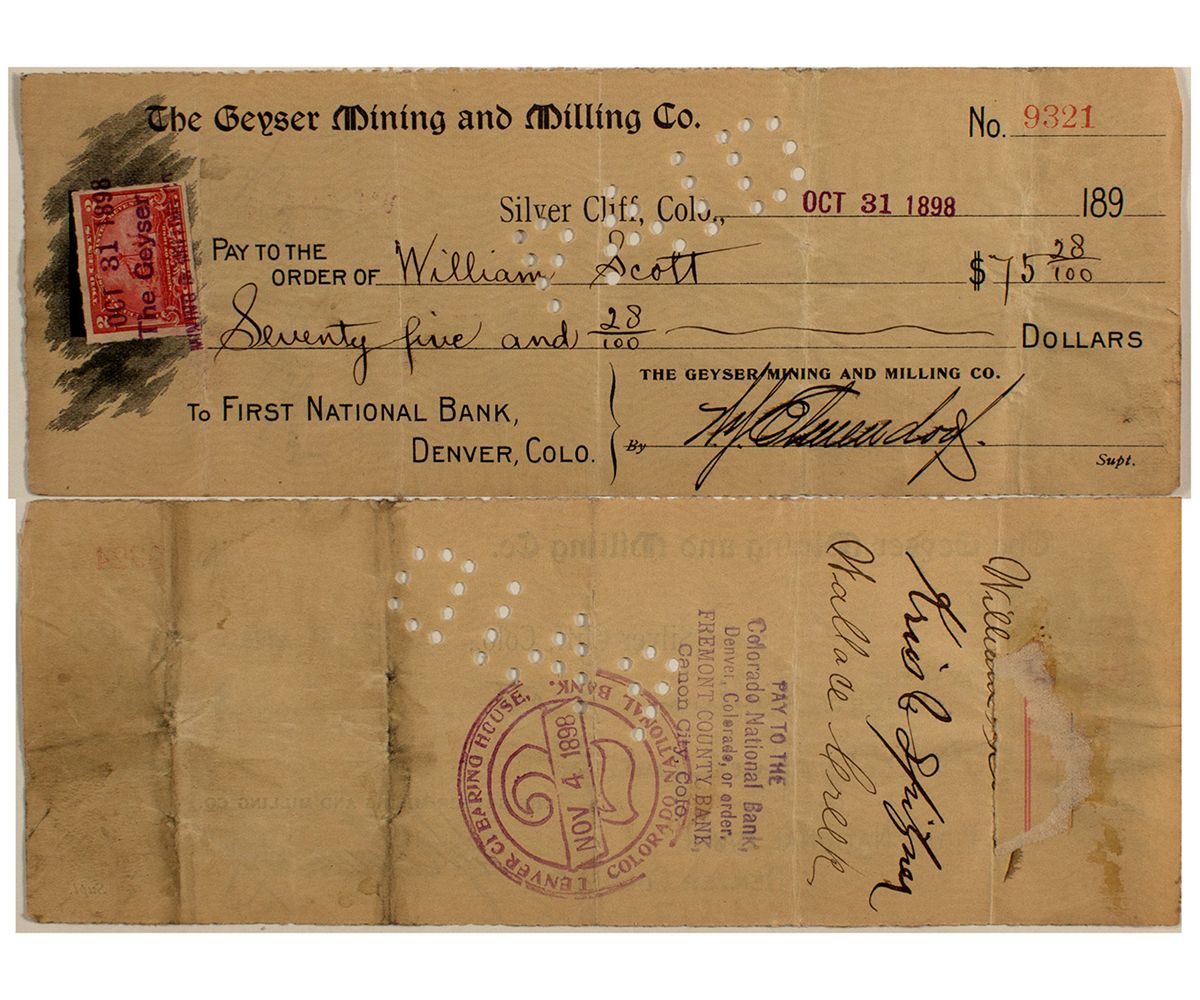 The Geyser Mining and Milling Co.
No. 9321
Silver Cliff, Colo., OCT 31 1898 189
PAY TO THE
ORDER OF William Scott $75 28/100
Seventy five and 28/100 DOLLARS
THE GEYSER MINING AND MILLING CO.
TO FIRST NATIONAL BANK,
DENVER, COLO.
By
Supt.
TWO CENTS
2 2
OCT 31 1898
The Geyser
MINING & MILLING
William
Cris C
Wallace Creek
PAY TO THE
Colorado National Bank,
Denver, Colorado, or order,
FREMONT COUNTY BANK,
Canon City, Colo.
DENVER CLEARING HOUSE,
COLORADO NATIONAL BANK.
NOV 4 1898
2